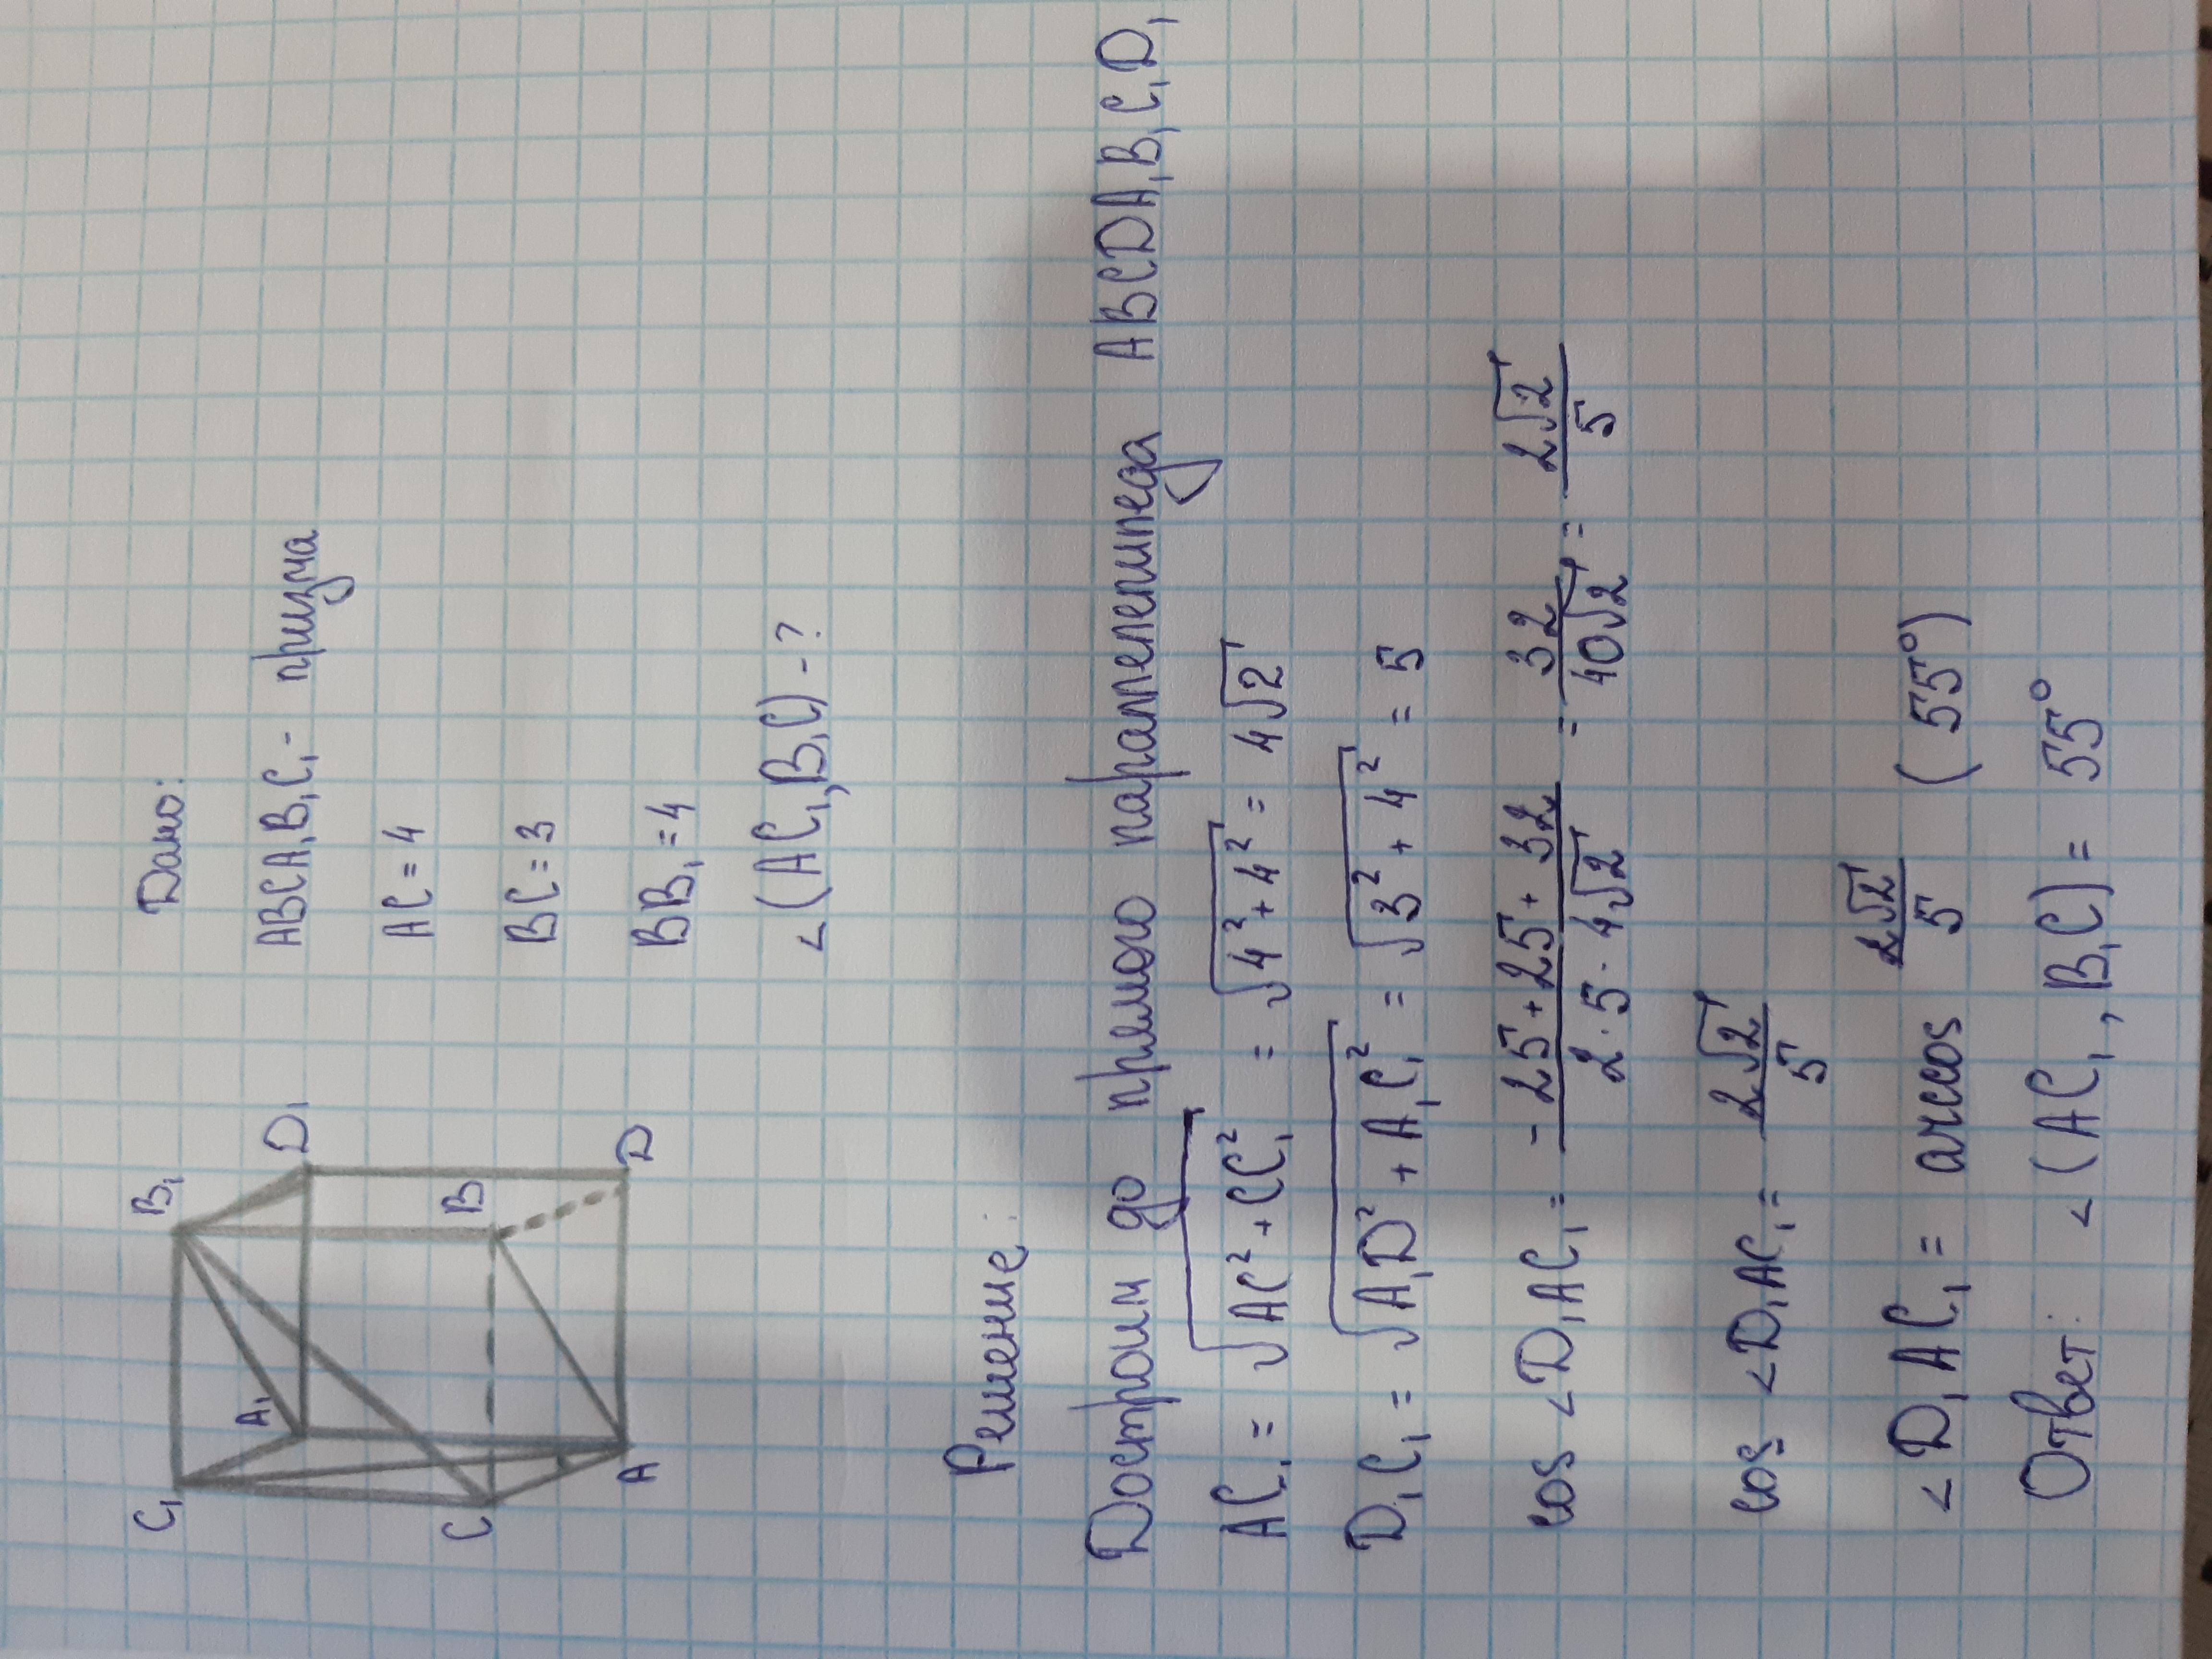 C₁
B₁
A₁
D₁
C
B
A
D
Дано:
ABCA₁B₁C₁ - призма
AC = 4
BC = 3
BB₁ = 4
∠(AC₁, B₁C) - ?
Решение:
Достроим до прямого параллелепипеда ABCDA₁B₁C₁D₁
AC₁ = √(AC² + CC₁²) = √(4² + 4²) = 4√2
D₁C₁ = √(A₁D² + A₁C₁²) = √(3² + 4²) = 5
cos ∠D₁AC₁ = (-25 + 25 + 32)/(2 · 5 · 4√2) = 32/(40√2) = 2√2/5
cos ∠D₁AC₁ = 2√2/5
∠D₁AC₁ = arccos 2√2/5 (55°)
Ответ: ∠(AC₁, B₁C) = 55°